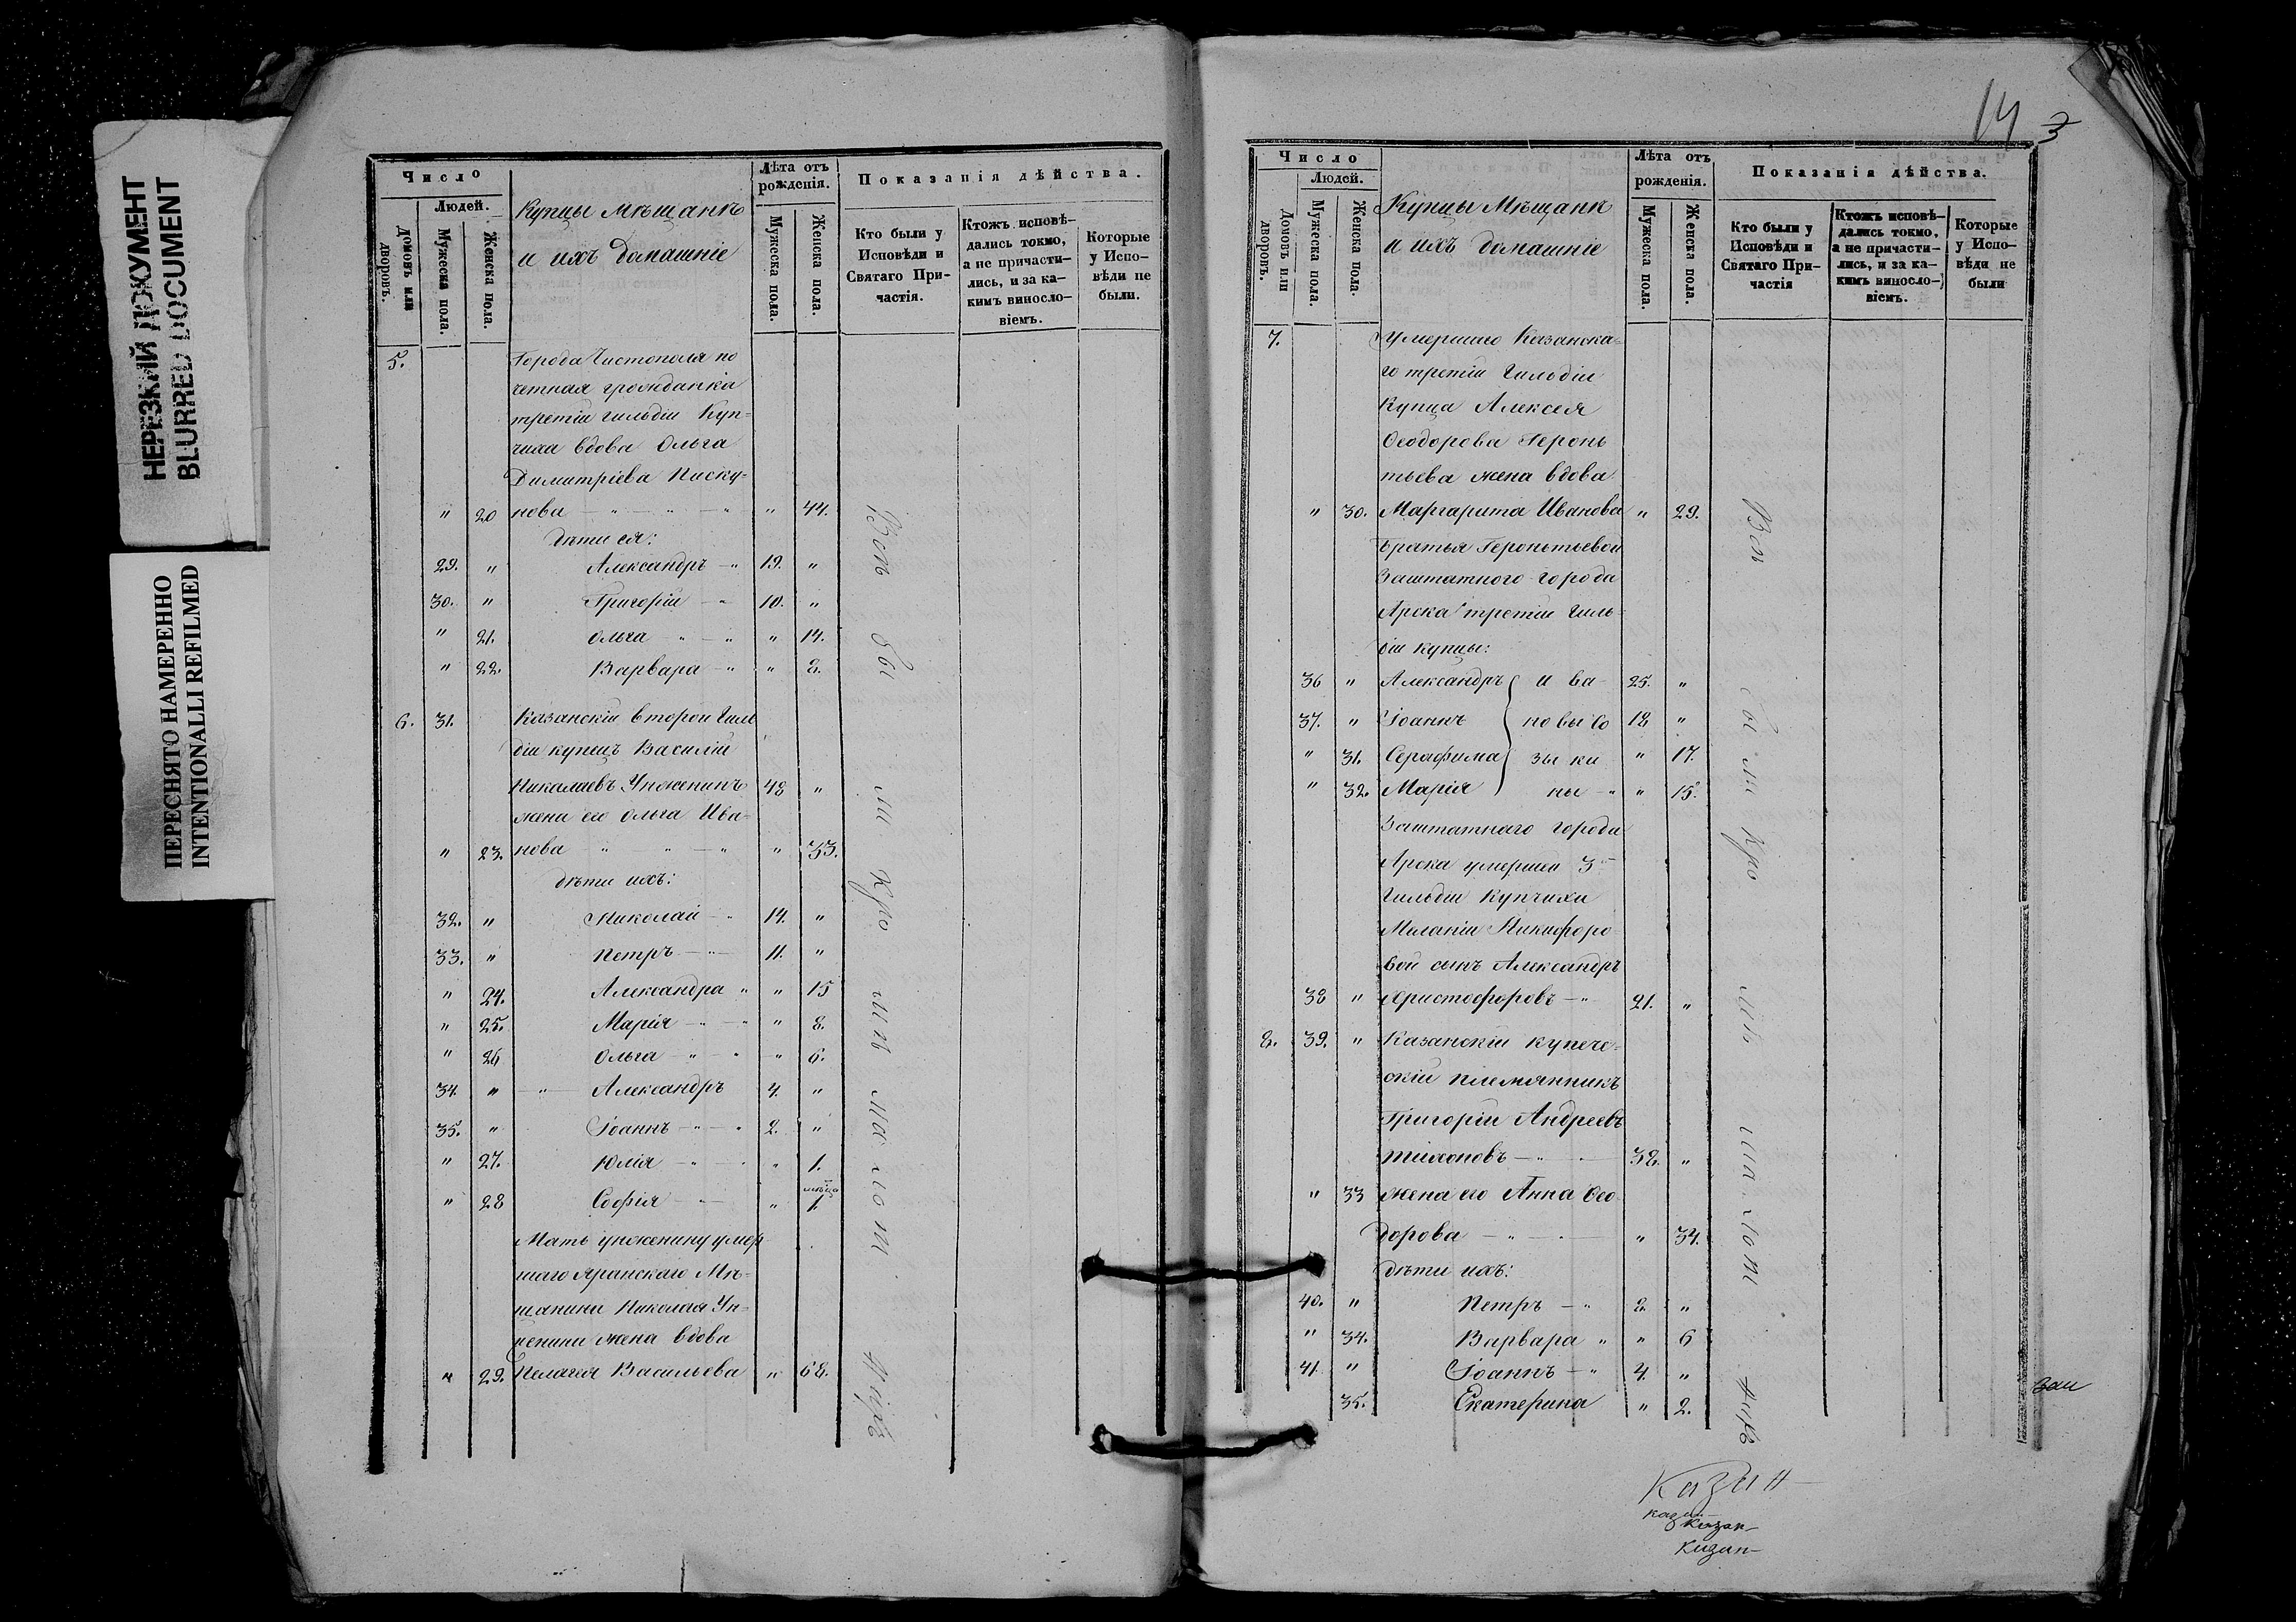 НЕРЕЗКИЙ ДОКУМЕНТ
BLURRED DOCUMENT
ПЕРЕСНЯТО НАМЕРЕННО
INTENTIONALLI REFILMED
Число
Людей.
Домовъ или дворовъ.
Мужеска пола.
Женска пола.
Купцы Мѣщанъ
и ихъ домашніе
Лѣта отъ рожденія.
Мужеска пола.
Женска пола.
Показанія дѣйства.
Кто были у Исповѣди и Святаго Причастія.
Ктожъ исповѣ-
дались токмо,
а не причасти-
лись, и за ка-
кимъ виносло-
віемъ.
Которые
у Испо-
вѣди не
были.
5.
Города Чистополя по
четная гражданка
третій гильдіи Куп-
чиха вдова Ольга
Димитріева Писку-
" 20 нова — " — " — " " 44.
дѣти ея:
29. " Александръ — " 19. "
30. " Григорій — " 10. "
" 21. Ольга — " — " " 14.
" 22. Варвара — " " 8.
6. 31. Казанскій второй Гиль
діи купецъ Василій
Николаевъ Унженинъ 48 "
жена его Ольга Ива-
" 23. нова " " — " " 33.
дѣти ихъ:
32. " Николай — " 14. "
33. " Петръ — " — 11. "
" 24. Александра " " 15
" 25. Марія — " — " " 8.
" 26 Ольга — " — " " 6.
34. " — " — Александръ 4. "
35. " Іоаннъ — " — " 2. "
" 27. Юлія — " — " " 1.
" 28 Софія — " — " мѣсца 1.
Мать Унженину умер
шаго Яранскаго Мѣ-
щанина Николая Ун-
женина жена вдова
" 29. Пелагея Васильева " 68.
Всѣ бы ли Кро мѣ ма лот нихъ
14 3
Число
Людей.
Домовъ или дворовъ.
Мужеска пола.
Женска пола.
Купцы Мѣщанъ
и ихъ домашніе
Лѣта отъ рожденія.
Мужеска пола.
Женска пола.
Показанія дѣйства.
Кто были у Исповѣди и Святаго Причастія
Ктожъ исповѣ-
дались токмо,
а не причасти-
лись, и за ка-
кимъ виносло-
віемъ.
Которые
у Испо-
вѣди не
были
7. Умершаго Казанска-
го третій Гильдіи
Купца Алексея
Ѳеодорова Геронь
тьева жена вдова
" 30. Маргарита Иванова " 29.
Братья Геронтьевой
Заштатного города
Арска третій Гиль-
діи купцы:
36 " Александръ } и ва- 25. "
37. " Іоаннъ } новы Со 18 "
" 31. Серафима } зы ки " 17.
" 32. Марія } ны — " " 15.
Заштатнаго города
Арска умершей 3й
Гильдіи Купчихи
Меланіи Никифоро
вой сынъ Александръ
38 " Христофоровъ — " 21. "
8. 39. " Казанскій купече-
скій племянникъ
Григорій Андреевъ
Тихоновъ — " — 38. "
" 33 жена его Анна Ѳео
дорова — " — " — " 34.
дѣти ихъ:
40. " Петръ — " 8. "
" 34. Варвара " " 6
41. " Іоаннъ — " 4. "
35. Екатерина " 2.
Всѣ бы ли Кро мѣ ма лот нихъ
Казан
казан
Казан
Казан